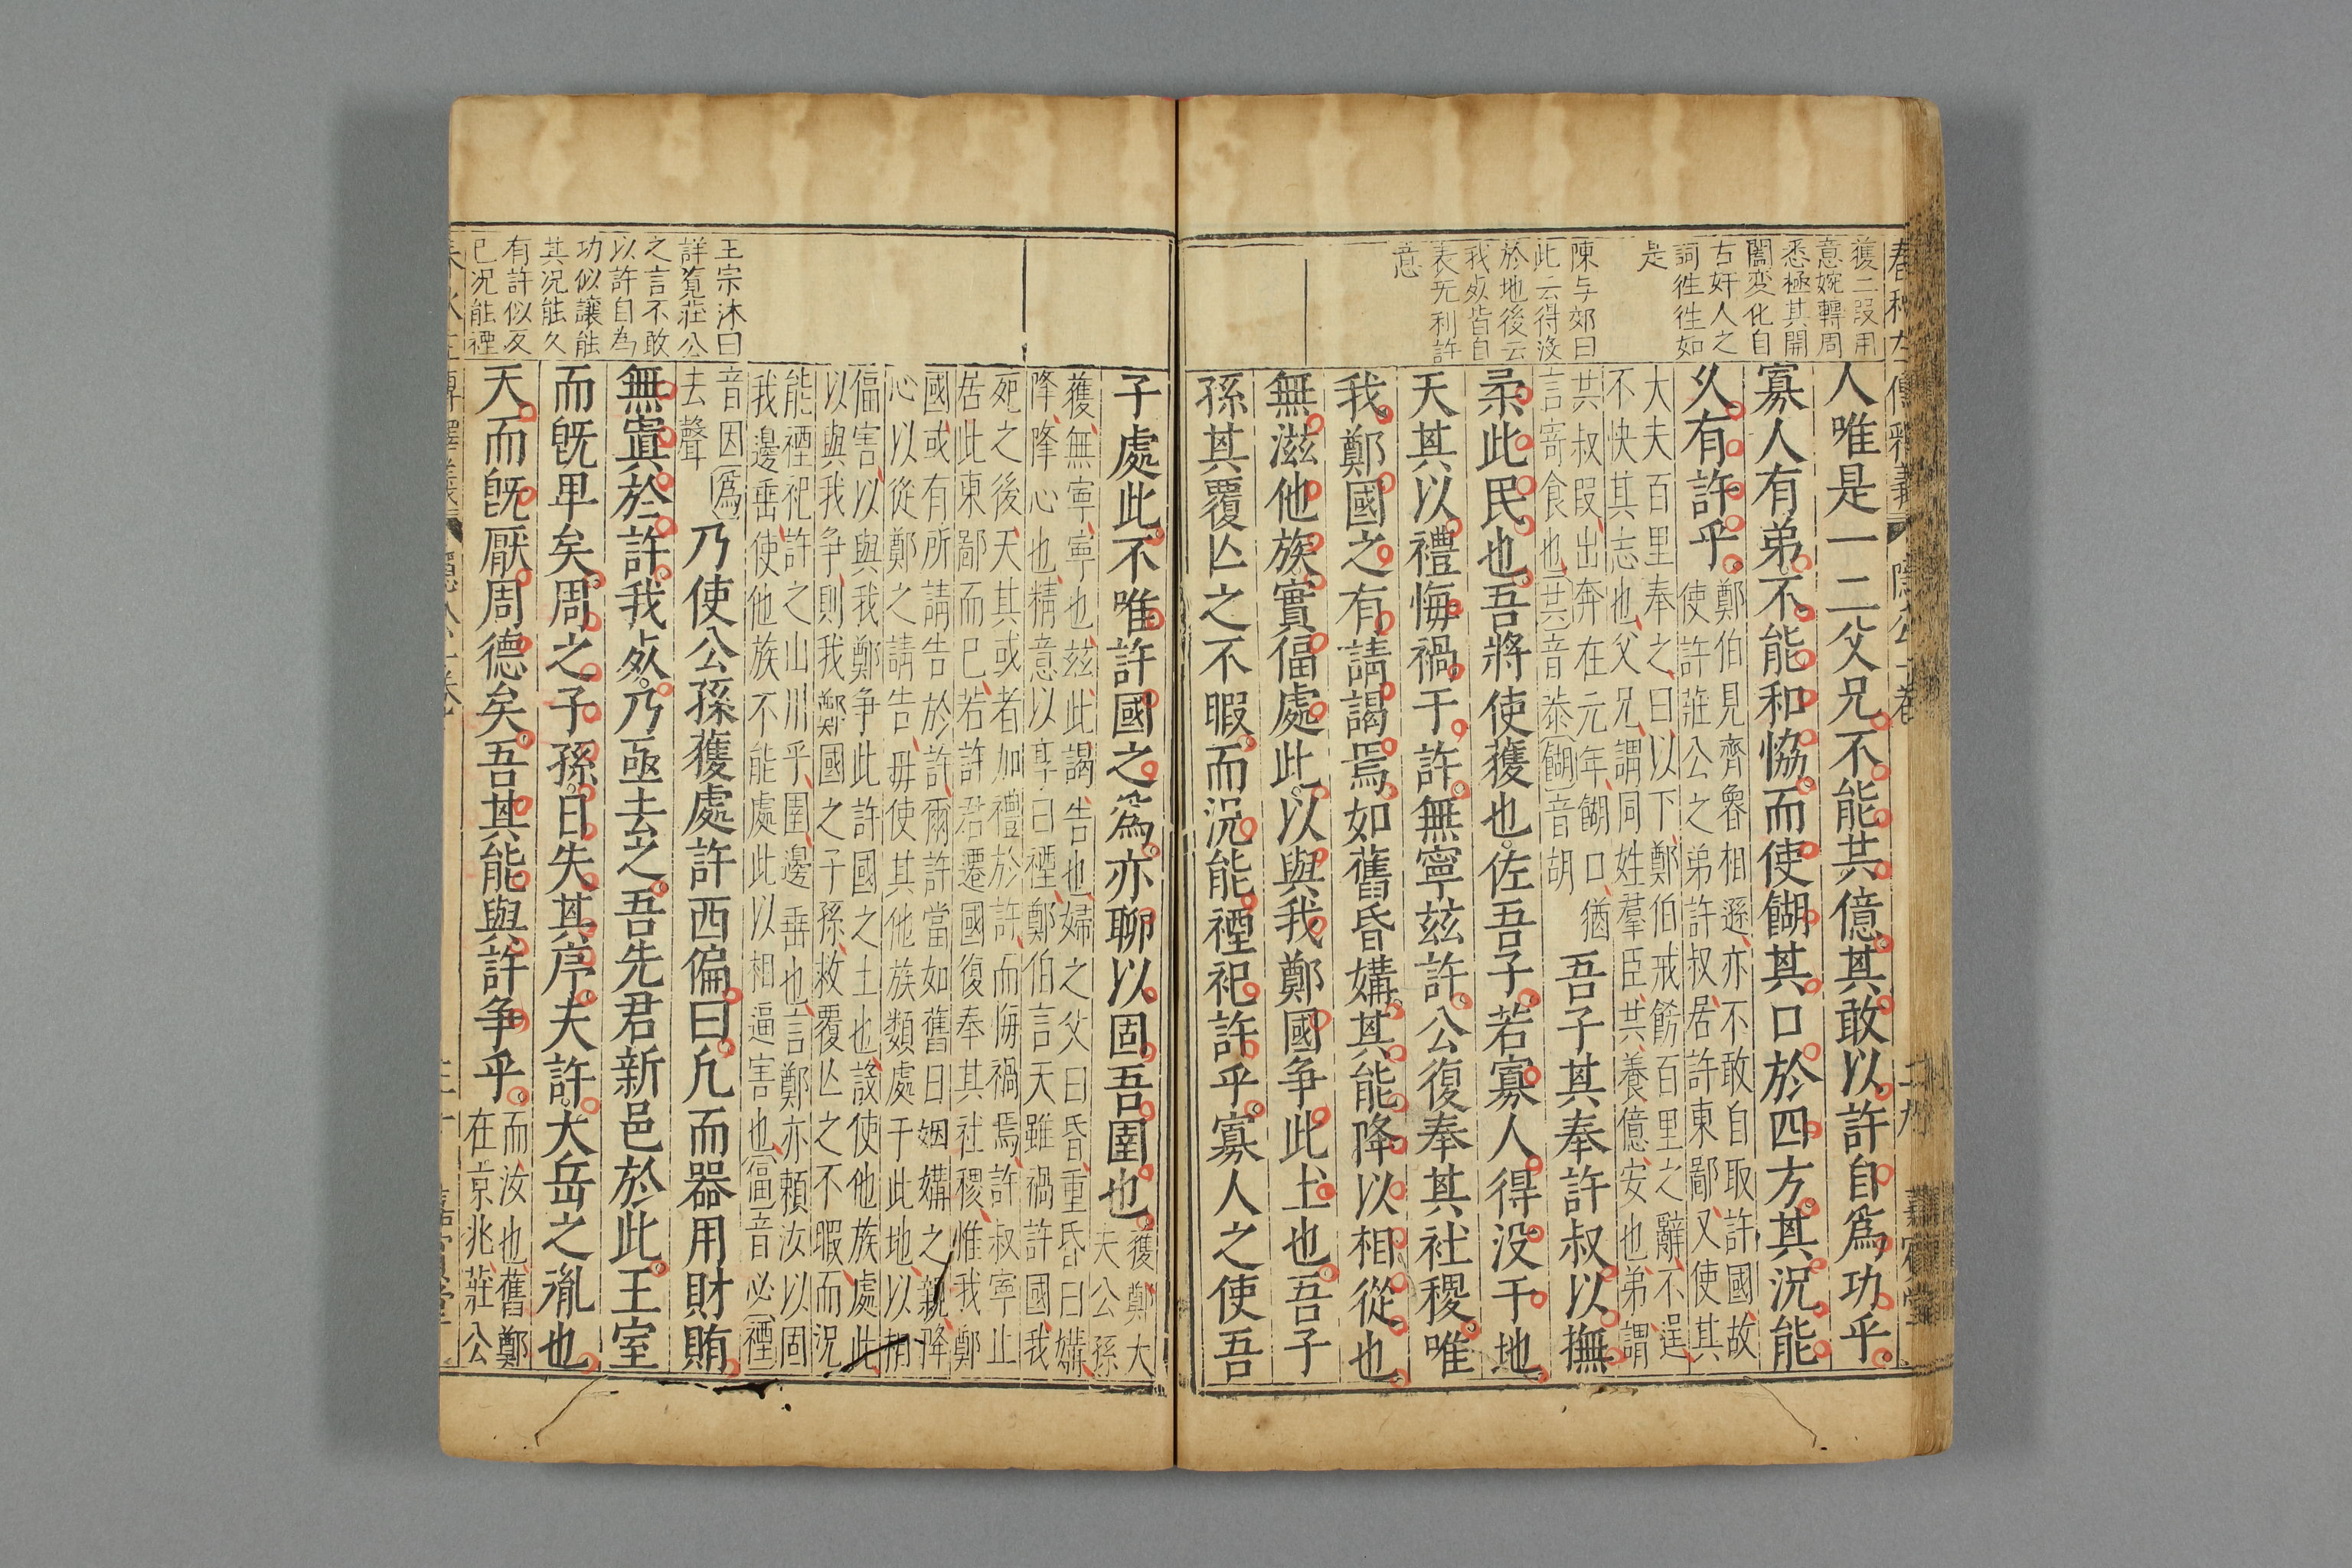 春秋左傳釋義 隱公一卷 二九 嘉賓堂
獲二段用
意婉轉周
悉極其開
闔変化自
古奸人之
詞徃徃如
是
陳与郊曰
此云得沒
於地後云
我死皆自
表无利許
意
人唯是一二父兄不能共億其敢以許自爲功乎
寡人有弟不能和恊而使餬其口於四方其況能
久有許乎
鄭伯見齊魯相遜亦不敢自取許國故
使許莊公之弟許叔居許東鄙又使其
大夫百里奉之曰以下鄭伯戒飭百里之辭不逞
不快其志也父兄謂同姓羣臣共養億安也弟謂
共叔叚出奔在元年餬口猶
言寄食也共音恭餬音胡
吾子其奉許叔以撫
柔此民也吾將使獲也佐吾子若寡人得没于地
天其以禮悔禍于許無寧兹許公復奉其社稷唯
我鄭國之有請謁焉如舊昏媾其能降以相從也
無滋他族實偪處此以與我鄭國争此土也吾子
孫其覆亾之不暇而況能禋祀許乎寡人之使吾
子處此不唯許國之爲亦聊以固吾圉也
獲鄭大
夫公孫
獲無寧寧也兹此謁告也婦之父曰昏重昏曰媾
降降心也精意以享曰禋鄭伯言天雖禍許國我
死之後天其或者加禮於許而悔禍焉許叔寧止
居此東鄙而已若許君遷國復奉其社稷惟我鄭
國或有所請告於許爾許當如舊日姻媾之親降
心以從鄭之請告毋使其他族類處于此地以相
偪害以與我鄭争此許國之土也設使他族處此
以與我争則我鄭國之子孫救覆亾之不暇而況
能禋祀許之山川乎圉邊垂也言鄭亦賴汝以固
我邊垂使他族不能處此以相逼害也偪音必禋
音因爲
去聲
王宗沐曰
詳覔莊公
之言不敢
以許自為
功似讓能
其况能久
有許似反
已况能禋
乃使公孫獲處許西偏曰凡而器用財賄
無寘於許我死乃亟去之吾先君新邑於此王室
而旣卑矣周之子孫日失其序夫許大岳之胤也
天而旣厭周德矣吾其能與許争乎
而汝也舊鄭
在京兆莊公